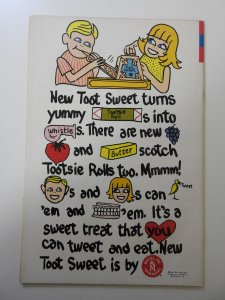 New Toot Sweet turns
yummy Tootsie Roll s into
whistle s. There are new
and Butter scotch
Tootsie Rolls too. Mmmm!
s and s can tweet
'em and 'em. It's a
sweet treat that you
can tweet and eat. New
Toot Sweet is by